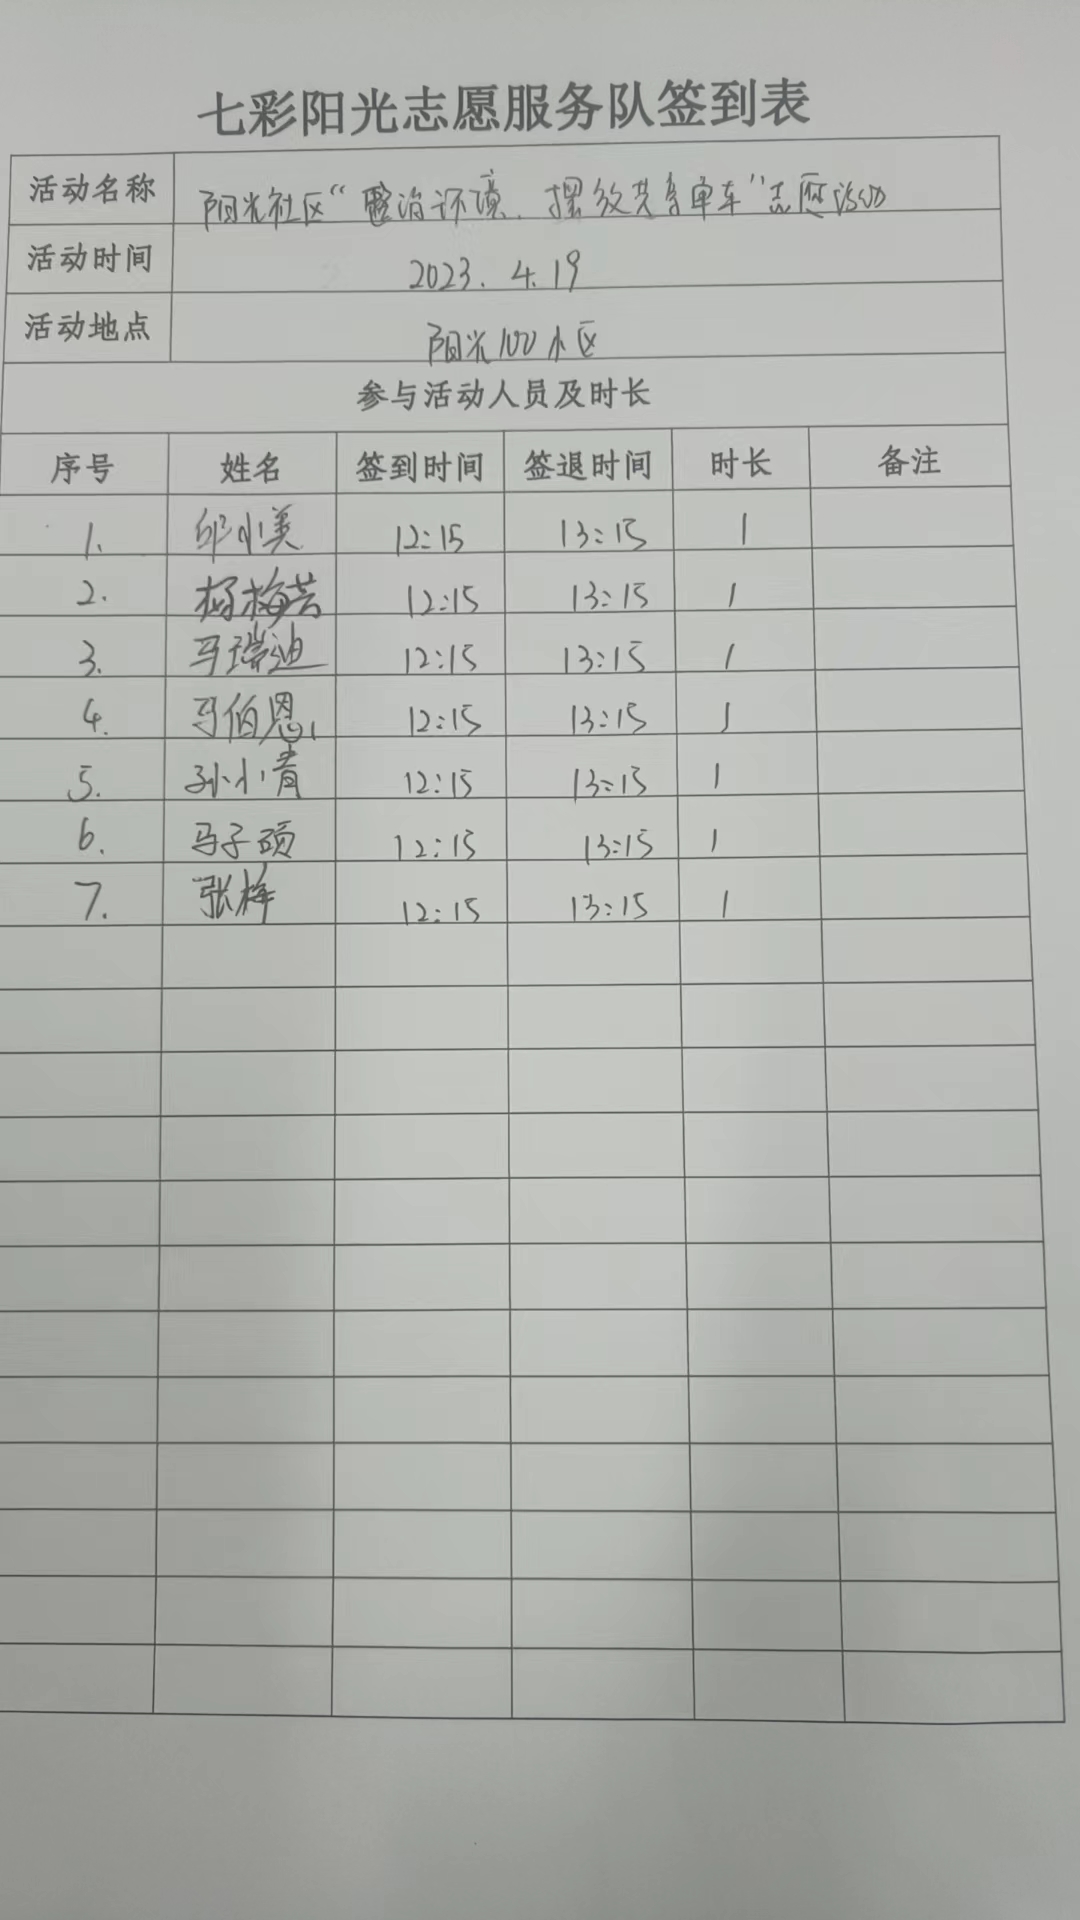 七彩阳光志愿服务队签到表
活动名称 阳光社区“整治环境、摆放共享单车”志愿活动
活动时间 2023.4.19
活动地点 阳光100小区
参与活动人员及时长
序号 姓名 签到时间 签退时间 时长 备注
1. 邱小美 12:15 13:15 1
2. 杨梅芸 12:15 13:15 1
3. 马瑞迪 12:15 13:15 1
4. 马伯恩 12:15 13:15 1
5. 孙小青 12:15 13:15 1
6. 马子硕 12:15 13:15 1
7. 张梅 12:15 13:15 1